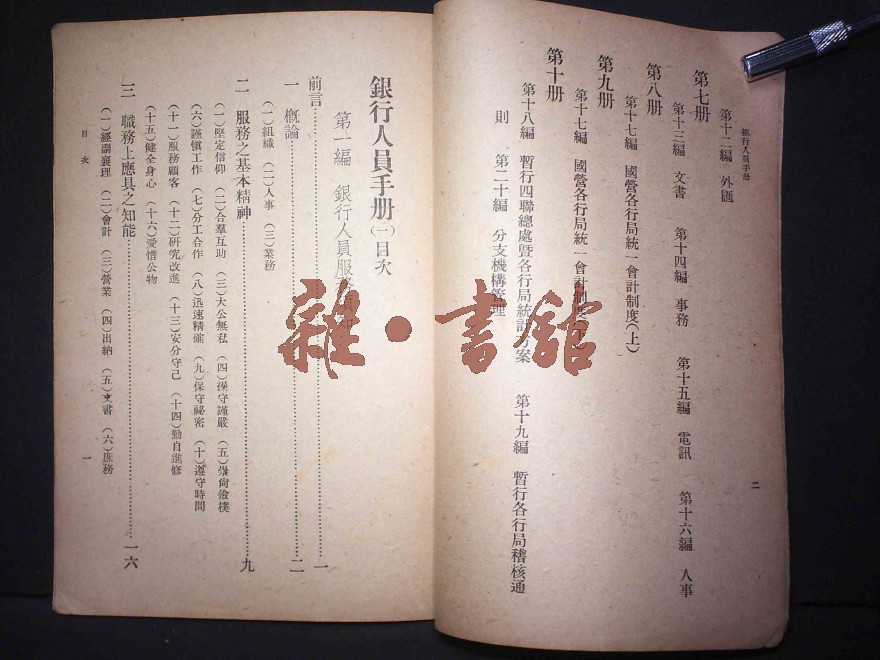 銀行人員手册
第十二編　外匯
第七册
第十三編　文書　第十四編　事務　第十五編　電訊　第十六編　人事
第八册
第十七編　國營各行局統一會計制度(上)
第九册
第十七編　國營各行局統一會計制度(下)
第十册
第十八編　暫行四聯總處暨各行局統計方案　第十九編　暫行各行局稽核通
則　第二十編　分支機構管理
二
銀行人員手册(一)目次
第一編　銀行人員服務
前言……一
一　概論……二
(一)組織　(二)人事　(三)業務
二　服務之基本精神……九
(一)堅定信仰　(二)合羣互助　(三)大公無私　(四)操守謹嚴　(五)崇尚儉樸
(六)謹愼工作　(七)分工合作　(八)迅速精確　(九)保守祕密　(十)遵守時間
(十一)服務顧客　(十二)研究改進　(十三)安分守己　(十四)勤自進修
(十五)健全身心　(十六)愛惜公物
三　職務上應具之知能……一六
(一)經副襄理　(二)會計　(三)營業　(四)出納　(五)文書　(六)庶務
目次
一
雜·書館